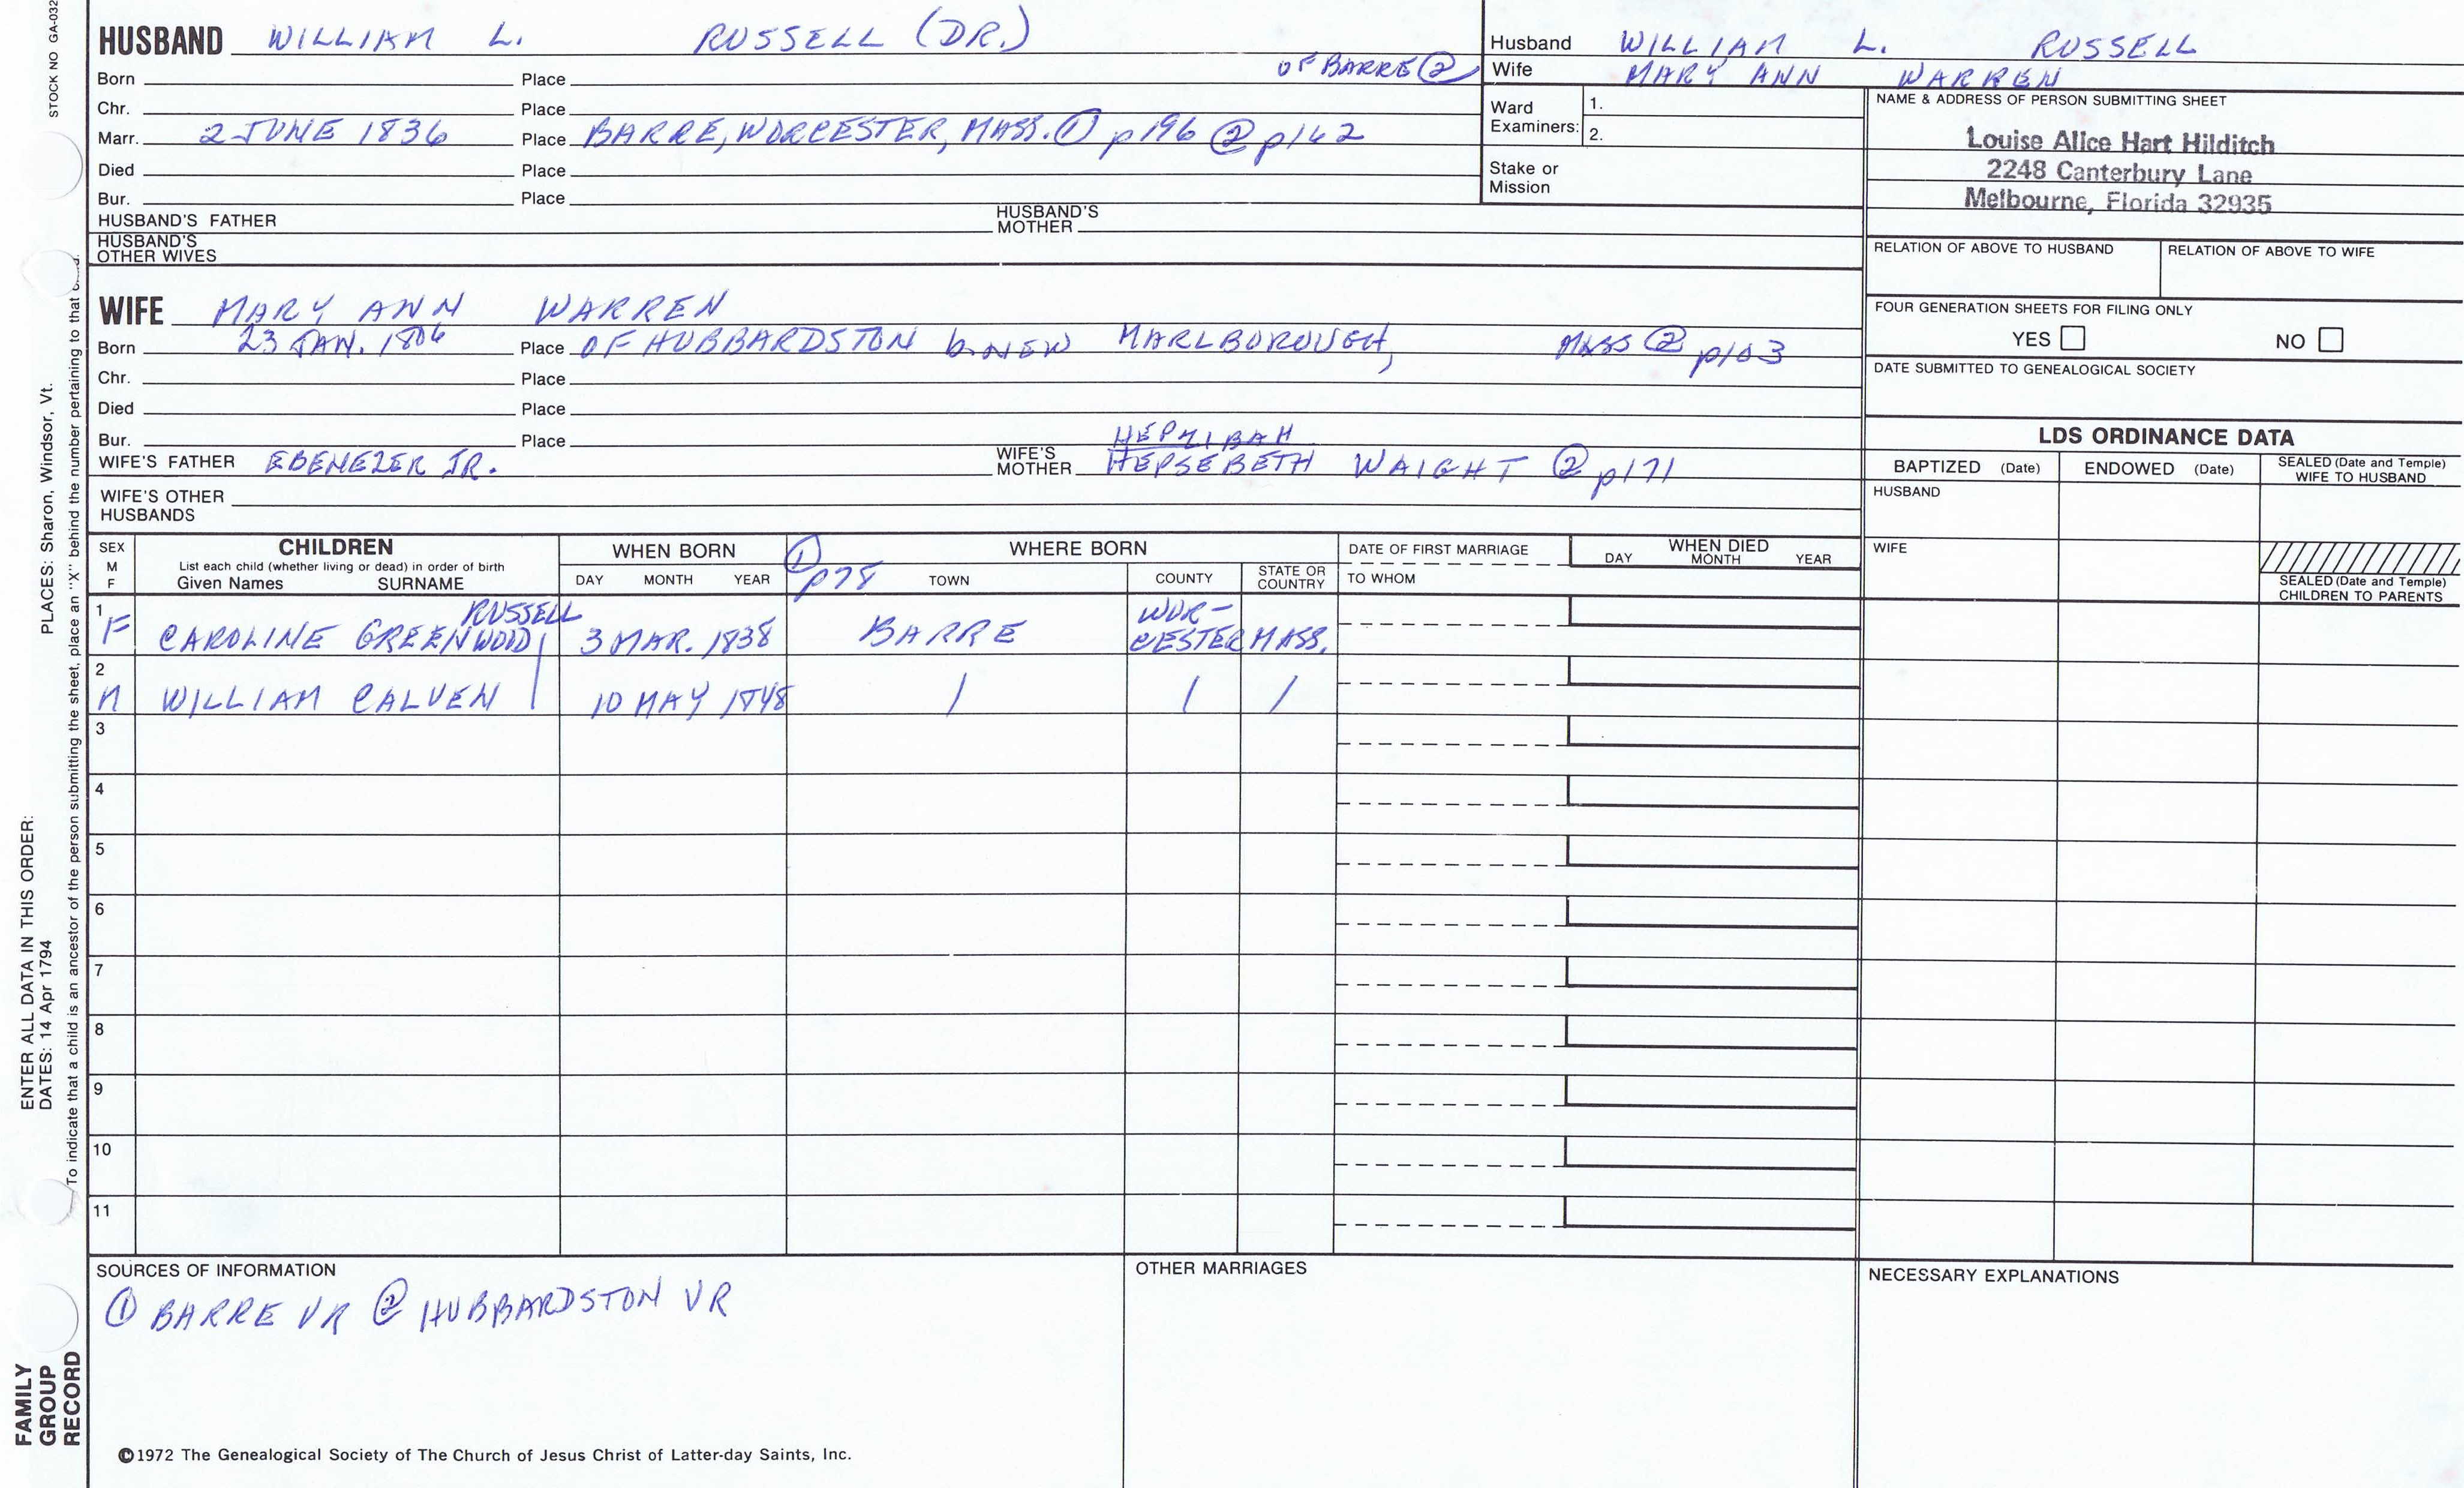 STOCK NO GA-032
HUSBAND WILLIAM L. RUSSELL (DR.)
OF BARRE ②
Born Place
Chr. Place
Marr. 2 JUNE 1836 Place BARRE, WORCESTER, MASS. ① p196 ② p162
Died Place
Bur. Place
HUSBAND'S FATHER HUSBAND'S MOTHER
HUSBAND'S OTHER WIVES
Husband WILLIAM L. RUSSELL
Wife MARY ANN WARREN
Ward Examiners: 1.
2.
Stake or Mission
NAME & ADDRESS OF PERSON SUBMITTING SHEET
Louise Alice Hart Hilditch
2248 Canterbury Lane
Melbourne, Florida 32935
RELATION OF ABOVE TO HUSBAND RELATION OF ABOVE TO WIFE
FOUR GENERATION SHEETS FOR FILING ONLY
YES NO
DATE SUBMITTED TO GENEALOGICAL SOCIETY
WIFE MARY ANN WARREN
Born 23 JAN. 1806 Place OF HUBBARDSTON b. NEW MARLBOROUGH, MASS ② p103
Chr. Place
Died Place
Bur. Place
HEPZIBAH
WIFE'S FATHER EBENEZER JR. WIFE'S MOTHER HEPSEBETH WAIGHT ② p171
WIFE'S OTHER HUSBANDS
LDS ORDINANCE DATA
BAPTIZED (Date) ENDOWED (Date) SEALED (Date and Temple) WIFE TO HUSBAND
HUSBAND
WIFE
SEALED (Date and Temple) CHILDREN TO PARENTS
SEX M F
CHILDREN
List each child (whether living or dead) in order of birth
Given Names SURNAME
WHEN BORN
DAY MONTH YEAR
① p78
WHERE BORN
TOWN COUNTY STATE OR COUNTRY
DATE OF FIRST MARRIAGE
TO WHOM
WHEN DIED
DAY MONTH YEAR
1 RUSSELL WOR-
F CAROLINE GREENWOOD 3 MAR. 1838 BARRE CESTER MASS.
2
M WILLIAM CALVEN | 10 MAY 1848 / / /
3
4
5
6
7
8
9
10
11
SOURCES OF INFORMATION
① BARRE VR ② HUBBARDSTON VR
OTHER MARRIAGES
NECESSARY EXPLANATIONS
©1972 The Genealogical Society of The Church of Jesus Christ of Latter-day Saints, Inc.
ENTER ALL DATA IN THIS ORDER:
DATES: 14 Apr 1794 PLACES: Sharon, Windsor, Vt.
To indicate that a child is an ancestor of the person submitting the sheet, place an "X" behind the number pertaining to that
FAMILY
GROUP
RECORD